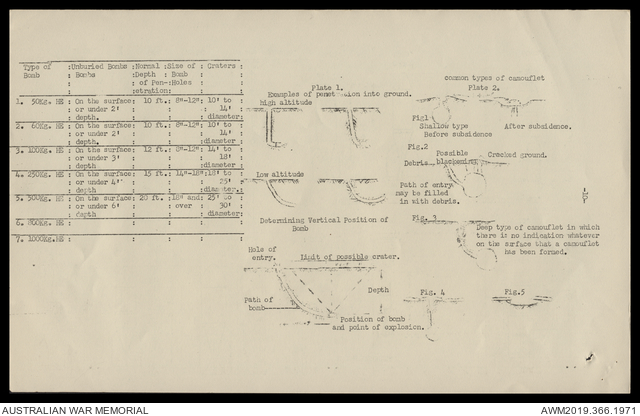 Type of :Unburied Bombs :Normal :Size of : Craters :
Bomb : Bombs :Depth : Bomb : :
: : of Pen-:Holes : :
: :etration: : :
1. 50Kg. HE : On the surface: 10 ft.: 8"-12": 10' to :
: or under 2' : : : 14' :
: depth. : : : diameter:
2. 60Kg. HE : On the surface: 10 ft.: 8"-12": 10' to :
: or under 2' : : : 14' :
: depth : : : diameter:
3. 100Kg. HE : On the surface: 12 ft.: 8"-12": 14' to :
: or under 3' : : : 18' :
: depth : : : diameter:
4. 250Kg. HE : On the surface: 15 ft.: 14"-18":18' to :
: or under 4' : : : 25' :
: depth : : : diameter:
5. 500Kg. HE : On the surface: 20 ft. :18" and: 25' to :
: or under 6' : : over : 30' :
: depth : : : diameter:
6. 800Kg. HE : : : : :
7. 1000Kg.HE : : : : :
Plate 1.
Examples of into ground.
high altitude
Low altitude
Determining Vertical Position of
Bomb
Hole of
entry.
Limit of possible crater.
Depth
Path of
bomb
Position of bomb
and point of explosion.
common types of camouflet
Plate 2.
Fig1
Shallow type
Before subsidence
After subsidence.
Fig.2
Possible
Debris. Crooked ground.
Path of entry
may be filled
in with debris.
Fig. 3
Deep type of camouflet in which
there is no indication whatever
on the surface that a camouflet
has been formed.
Fig. 4
Fig.5
AUSTRALIAN WAR MEMORIAL
AWM2019.366.1971